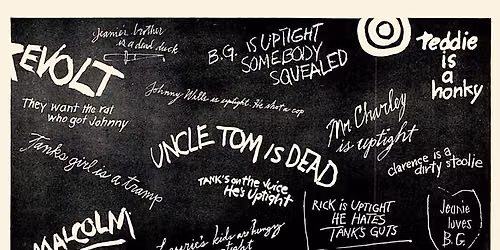 Jeanie's brother
is a dead duck
B.G. IS UPTIGHT
SOMEBODY
SQUEALED
teddie
is
a
honky
REVOLT
They want the rat
who got Johnny
Johnny Wells is uptight. He shot a cop
Mr. Charley
is uptight
UNCLE TOM IS DEAD
clarence is a
dirty stoolie
Tanks girl is a tramp
TANK'S on the juice
He's Uptight
RICK is UPTIGHT
HE HATES
TANK'S GUTS
Jeanie
loves
B.G.
MALCOLM
Laurie's kids are hungry